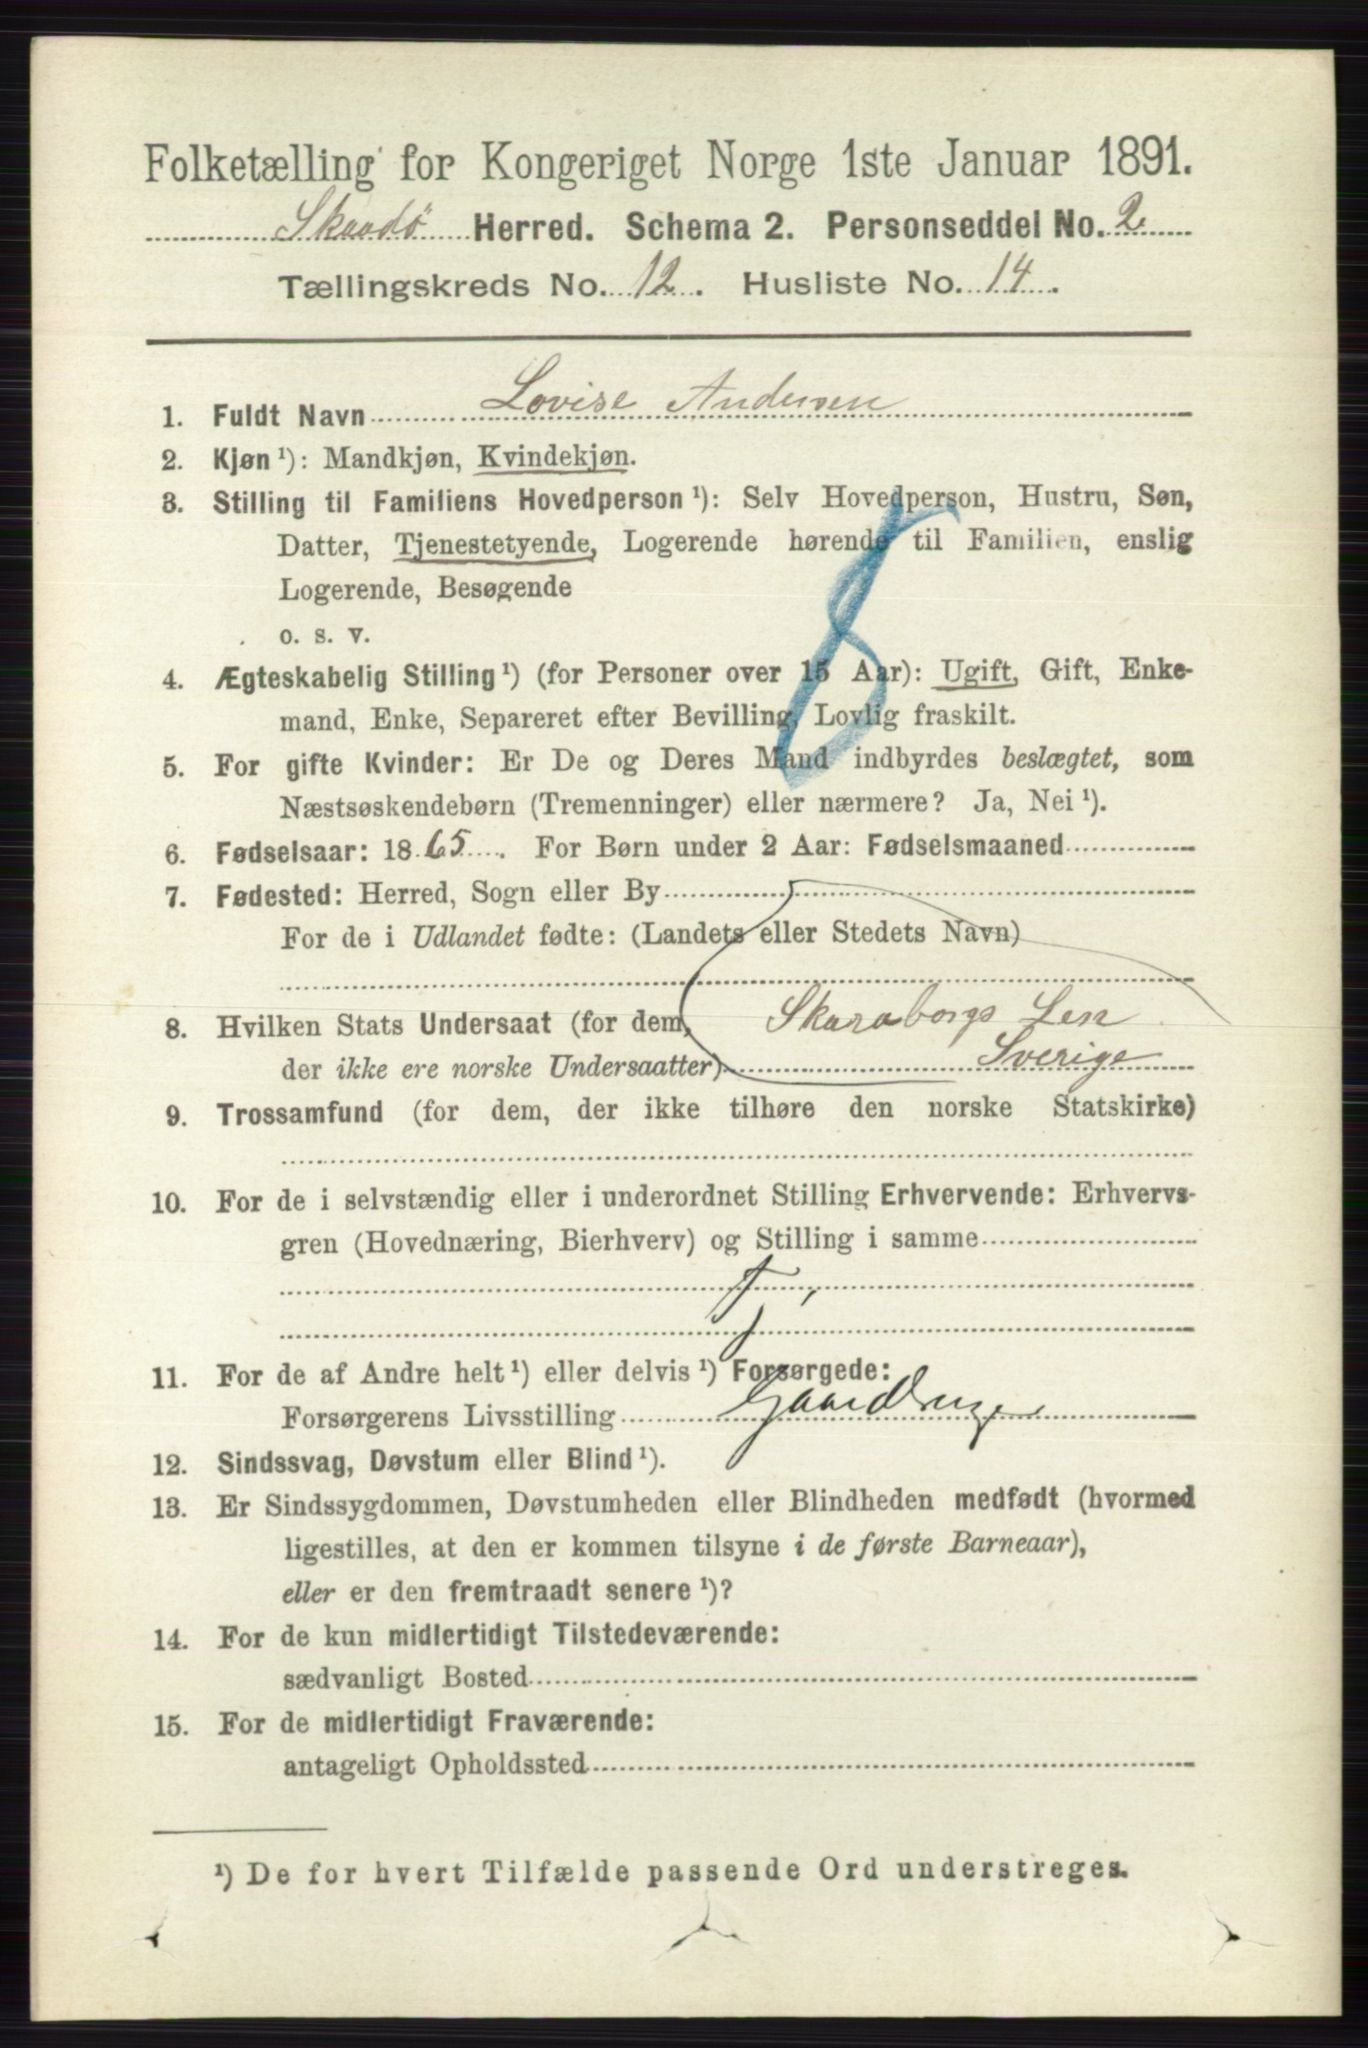 Folketælling for Kongeriget Norge 1ste Januar 1891.
Skaadö Herred. Schema 2. Personseddel No. 2
Tællingskreds No. 12. Husliste No. 14.
1. Fuldt Navn Lovise Andersen
2. Kjøn ¹): Mandkjøn, Kvindekjøn.
3. Stilling til Familiens Hovedperson ¹): Selv Hovedperson, Hustru, Søn,
Datter, Tjenestetyende, Logerende hørende til Familien, enslig
Logerende, Besøgende
o. s. v.
8
4. Ægteskabelig Stilling ¹) (for Personer over 15 Aar): Ugift, Gift, Enke-
mand, Enke, Separeret efter Bevilling, Lovlig fraskilt.
5. For gifte Kvinder: Er De og Deres Mand indbyrdes beslægtet, som
Næstsøskendebørn (Tremenninger) eller nærmere? Ja, Nei ¹).
6. Fødselsaar: 1865. For Børn under 2 Aar: Fødselsmaaned
7. Fødested: Herred, Sogn eller By
For de i Udlandet fødte: (Landets eller Stedets Navn)
8. Hvilken Stats Undersaat (for dem, Skaraborgs Len
der ikke ere norske Undersaatter) Sverige
9. Trossamfund (for dem, der ikke tilhøre den norske Statskirke)
10. For de i selvstændig eller i underordnet Stilling Erhvervende: Erhvervs-
gren (Hovednæring, Bierhverv) og Stilling i samme
11. For de af Andre helt ¹) eller delvis ¹) Forsørgede:
Forsørgerens Livsstilling
12. Sindssvag, Døvstum eller Blind ¹).
13. Er Sindssygdommen, Døvstumheden eller Blindheden medfødt (hvormed
ligestilles, at den er kommen tilsyne i de første Barneaar),
eller er den fremtraadt senere ¹)?
14. For de kun midlertidigt Tilstedeværende:
sædvanligt Bosted
15. For de midlertidigt Fraværende:
antageligt Opholdssted
¹) De for hvert Tilfælde passende Ord understreges.